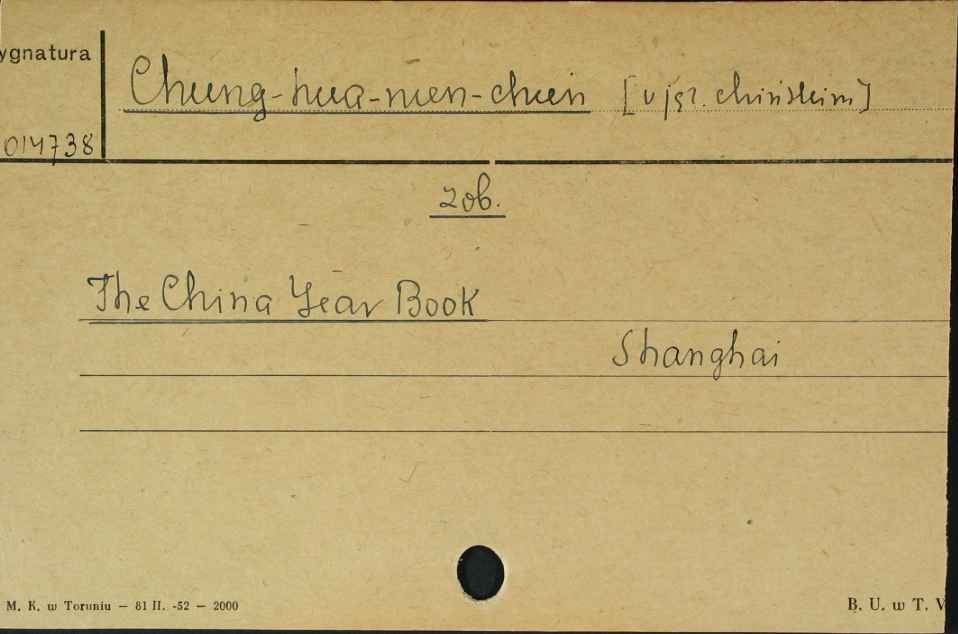 ygnatura
Chung-hua-nien-chien [w jęz. chińskim]
014738
zob.
The China Year Book
Shanghai
M. K. w Toruniu — 81 II. -52 — 2000
B. U. w T. V